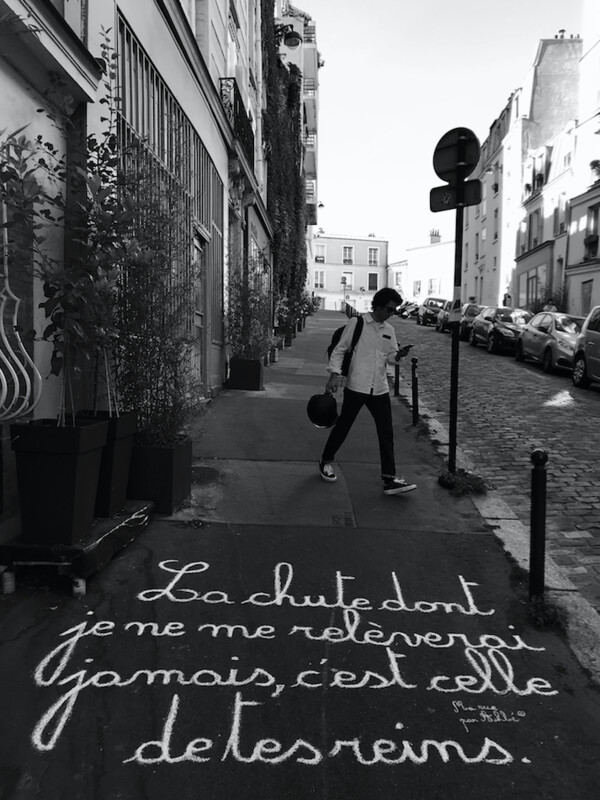 La chute dont
je ne me relèverai
jamais, c'est celle
de tes reins.
Ma rue
par